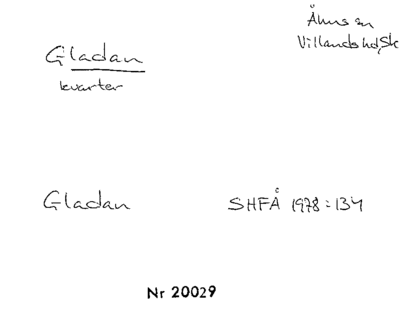 Åhus sn
Villands hd, Sk
Gladan
kvarter
Gladan
SHFÅ 1978:134
Nr 20029